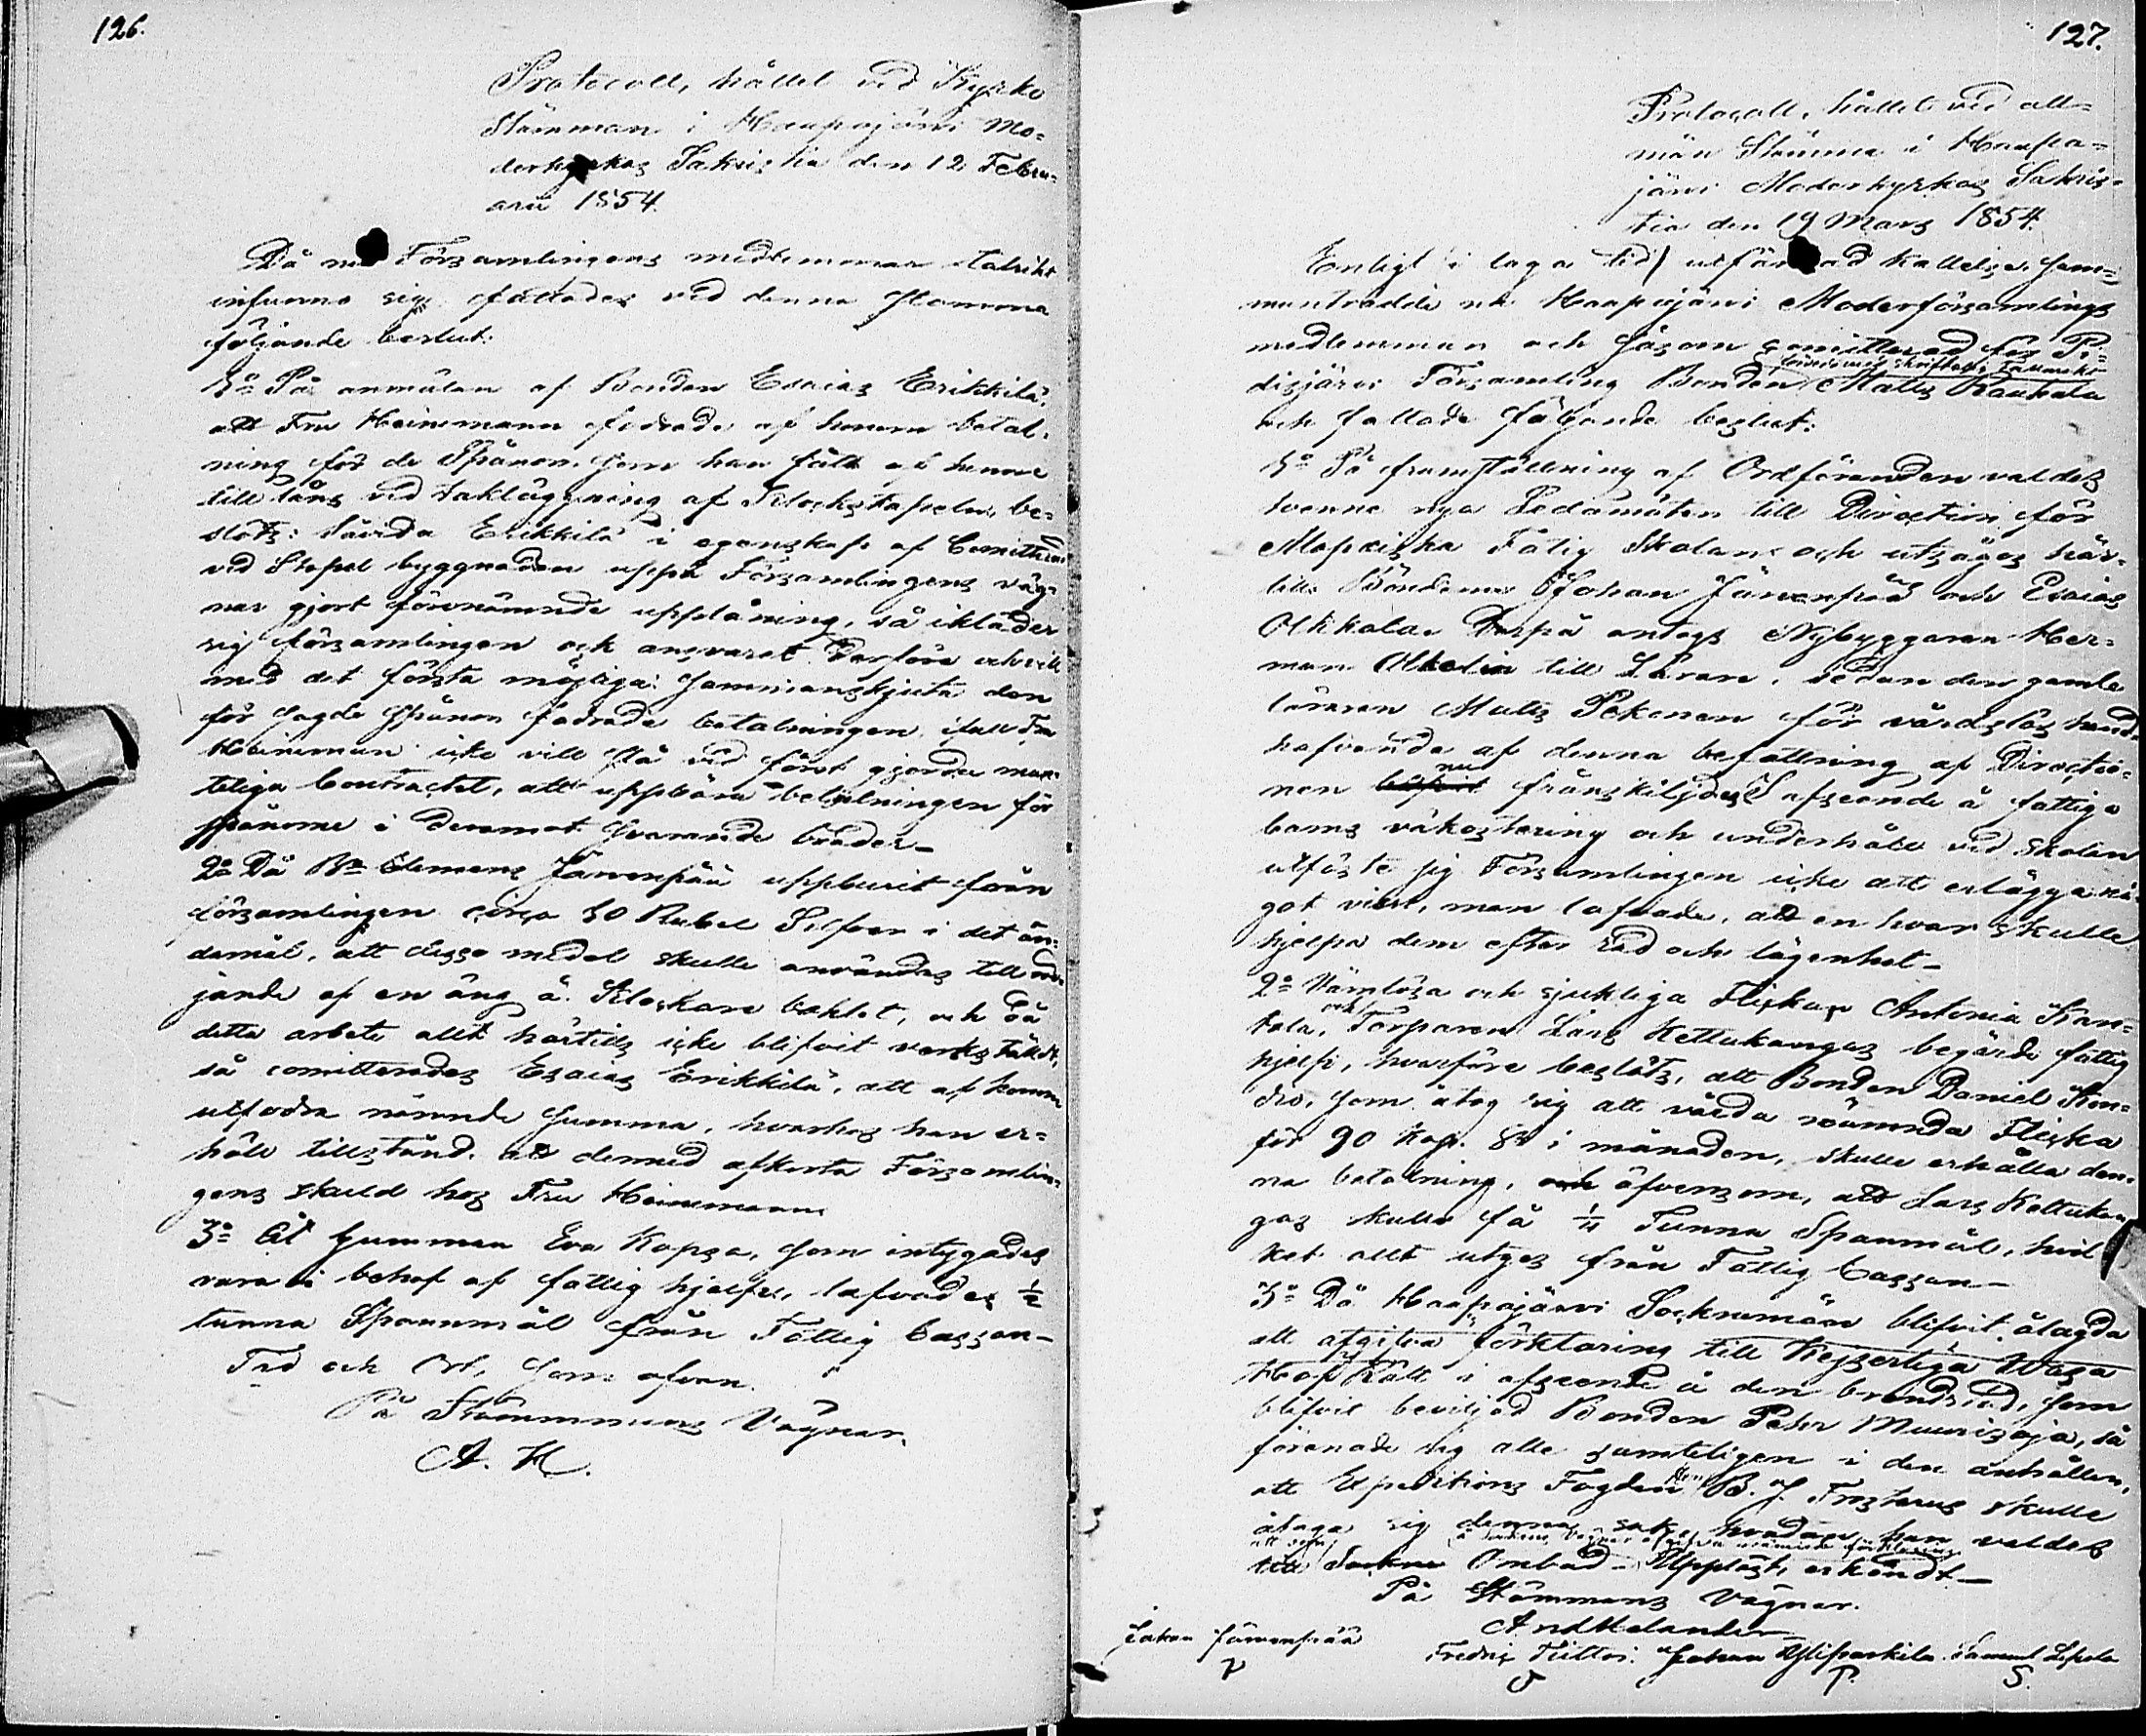 126.
Protocoll, hållet vid Kyrko
Stämman i Haapajärvi Mo-
derkyrkas Sakristia den 12 Febru-
arii 1854.
Då nu Församlingens medlemmar talrikt
infunno sig fattades vid denna Stämma
följande beslut:
1o På anmälan af Bonden Esaias Erikkilä,
att Fru Heinemann fodrade af honom betal-
ning för de Spånor, som han fått af henne
till låns vid takläggning af Klockstapeln, be-
slöts: såvida Erikkilä i egenskap af Comitterad
vid Stapel byggnaden uppå Församlingens väg-
nar gjort förenämnde upplåning, så ikläder
sig församlingen ock ansvaret derföre och vill
med det första möjliga sammanskjuta den
för sagde Spånor fodrade betalningen, ifall Fru
Heineman icke vill stå vid först gjorda munt-
teliga Contractet, att uppbära betalningen för
spånorne i deremot svarande bräder_
2o Då Bn Clemens Järvenpää uppburit från
församlingen circa 30 Rubel Silfver i det än-
damål, att desse medel skulle användas till od-
jande af en äng å Klockare bohlet, och då
detta arbete allt härtills icke blifvit verkstäldt,
så comitterades Esaias Erikkilä, att af honom
utfodra nämnde summa, hvarhos han er-
höll tillstånd att dermed afkorta Församlin-
gens skuld hos Fru Heinemann.
3o Åt Gumman Eva Kopsa, som intygades
vara i behof af fattig hjelpen, lofvades 1/2
tunna Spannmål från Fattig Cassan_
Tid och Ort, som ofvan.
På Stämmans Vägnar.
A. H.
127.
Protocoll, hållet vid all-
män Stämma i Haapa-
järvi Moderkyrkas Sakris-
tia den 19 Mars 1854.
Enligt i laga tid utfärdad kallelse sam-
manträdde nu Haapajärvi Moderförsamlings
medlemmar och såsom comitterad för Pi-
disjärvi Församling Bonden Matts Rautala
och fattade följande beslut:
1o På framställning af Ordföranden valdes
tvenne nya Ledamöter till Direction för
Fattig Skolan och utsågos här-
till Bönderne Johan Järvenpää och Esaias
Olkkola. Derpå antogs Nybyggaren Her-
man till Lärare, sedan den gamle
läraren Matts Pekonen för vårdslöst hand-
hafvande af denna befattning af Directio-
nen nu frånskiljdes. I afseende å fattiga
barns vikostering och underhåll vid skolan
utfäste sig Församlingen icke att erlägga nå-
got visst, men lofvade, att en hvar skulle
hjelpa dem efter råd och lägenhet_
2o Värnlösa och sjukliga Flickan Antonia Kan-
tola, och Torparen Lars Kettukangas begärde fattig
hjelp, hvarföre beslöts, att Bonden Daniel
som åtog sig att vårda nämnda Flicka
för 90 Kop. Sr i månaden, skulle erhålla den-
na betalning, äfvensom, att Lars Kettukan
gas skulle få 1/4 Tunna Spanmål, hvil
ket allt utges från Fattig Cassan_
3o Då Haapajärvi Sockenmän blifvit ålagda
att afgifva förklaring till Kejserliga Wasa
Hof Rätt i afseende å den brandstod, som
blifvit beviljad Bonden Petter Muurisoja, så
förenade sig alla samteligen i den anhållan,
att Expeditions Fogden Herr B. J. Frosterus skulle
åtaga sig denna sak, hvadan han valdes
att som å Sockens vägnar afgifva nämnde förklaring
till Ombud_ Uppläst, erkändt_
På Stämmans Vägnar.
And Helander
Johan Järvenpää Fredric Tiitto Johan Yliparkkila Samuel Lepola